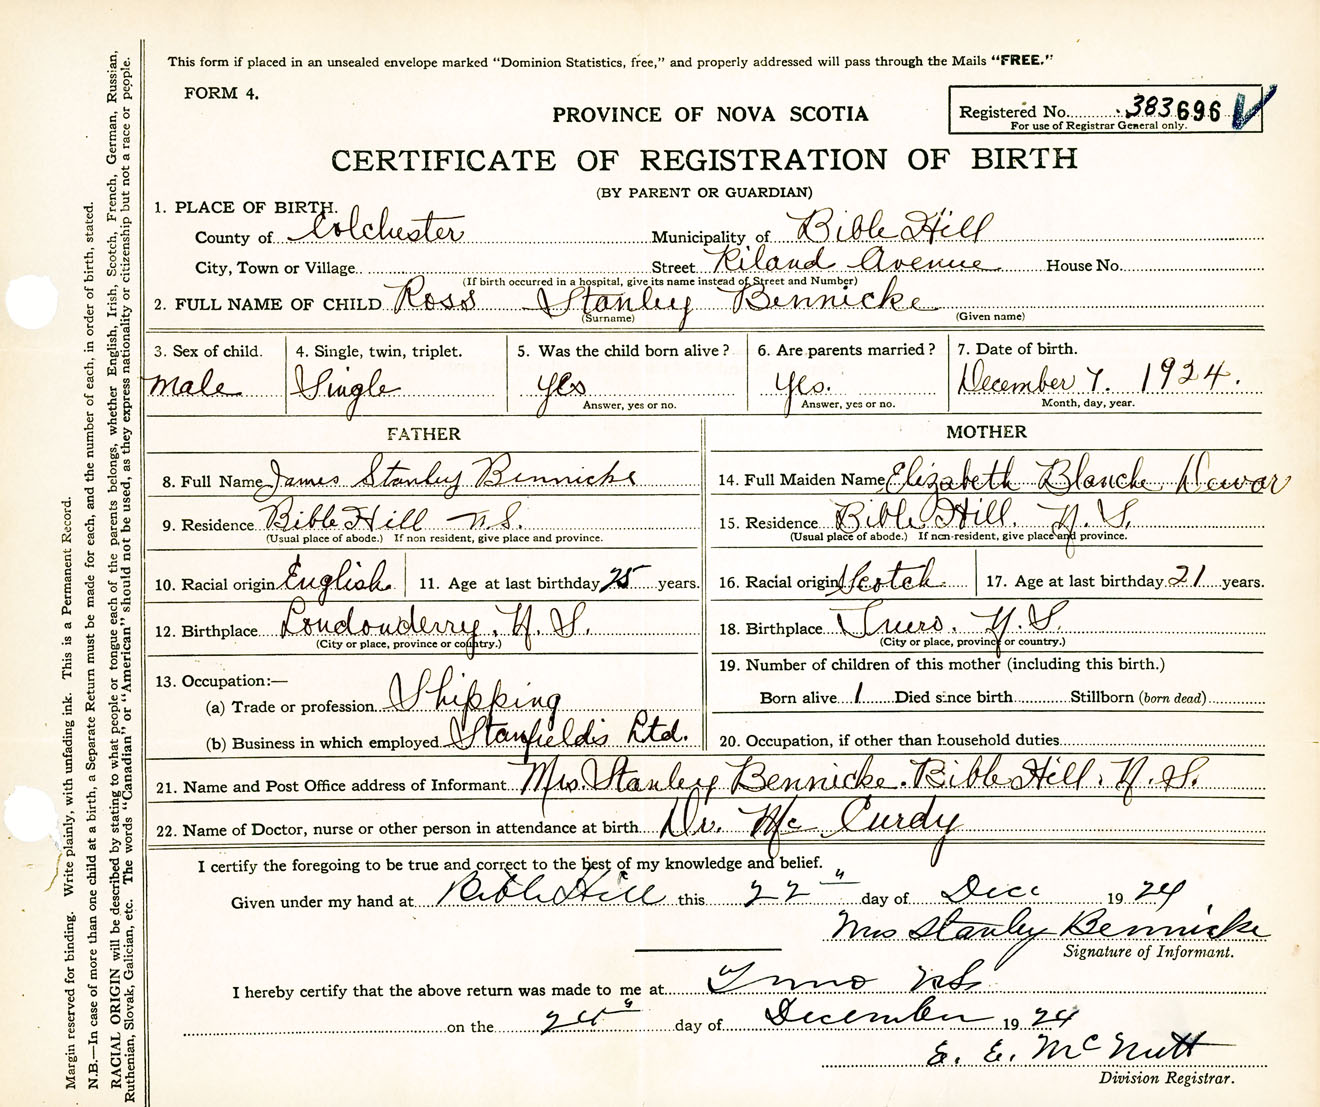 This form if placed in an unsealed envelope marked "Dominion Statistics, free," and properly addressed will pass through the Mails "FREE."
FORM 4.
PROVINCE OF NOVA SCOTIA
Registered No. 383696
For use of Registrar General only.
CERTIFICATE OF REGISTRATION OF BIRTH
(BY PARENT OR GUARDIAN)
1. PLACE OF BIRTH.
County of Colchester Municipality of Bible Hill
City, Town or Village Street Riland Avenue House No.
(If birth occurred in a hospital, give its name instead of Street and Number)
2. FULL NAME OF CHILD Ross Stanley Bennicke
(Surname) (Given name)
3. Sex of child. 4. Single, twin, triplet. 5. Was the child born alive? 6. Are parents married? 7. Date of birth.
Male Single yes yes. December 7. 1924.
Answer, yes or no. Answer, yes or no. Month, day, year.
FATHER MOTHER
8. Full Name James Stanley Bennicke 14. Full Maiden Name Elizabeth Blanche Dewar
9. Residence Bible Hill N.S. 15. Residence Bible Hill. N.S.
(Usual place of abode.) If non resident, give place and province. (Usual place of abode.) If non-resident, give place and province.
10. Racial origin English 11. Age at last birthday 25 years. 16. Racial origin Scotch 17. Age at last birthday 21 years.
12. Birthplace Londonderry, N.S. 18. Birthplace Truro. N.S.
(City or place, province or country.) (City or place, province or country.)
13. Occupation:— 19. Number of children of this mother (including this birth.)
(a) Trade or profession Shipping Born alive 1 Died since birth Stillborn (born dead)
(b) Business in which employed Stanfield's Ltd. 20. Occupation, if other than household duties
21. Name and Post Office address of Informant Mrs. Stanley Bennicke. Bible Hill. N.S.
22. Name of Doctor, nurse or other person in attendance at birth Dr. McCurdy
I certify the foregoing to be true and correct to the best of my knowledge and belief.
Given under my hand at Bible Hill this 22" day of Dec 1924
Mrs Stanley Bennicke
Signature of Informant.
I hereby certify that the above return was made to me at Truro NS
on the 24 day of December 1924
E. E. McNutt
Division Registrar.
Margin reserved for binding. Write plainly, with unfading ink. This is a Permanent Record.
N.B.—In case of more than one child at a birth, a Separate Return must be made for each, and the number of each, in order of birth, stated.
RACIAL ORIGIN will be described by stating to what people or tongue each of the parents belongs, whether English, Irish, Scotch, French, German, Russian,
Ruthenian, Slovak, Galician, etc. The words "Canadian" or "American" should not be used, as they express nationality or citizenship but not a race or people.